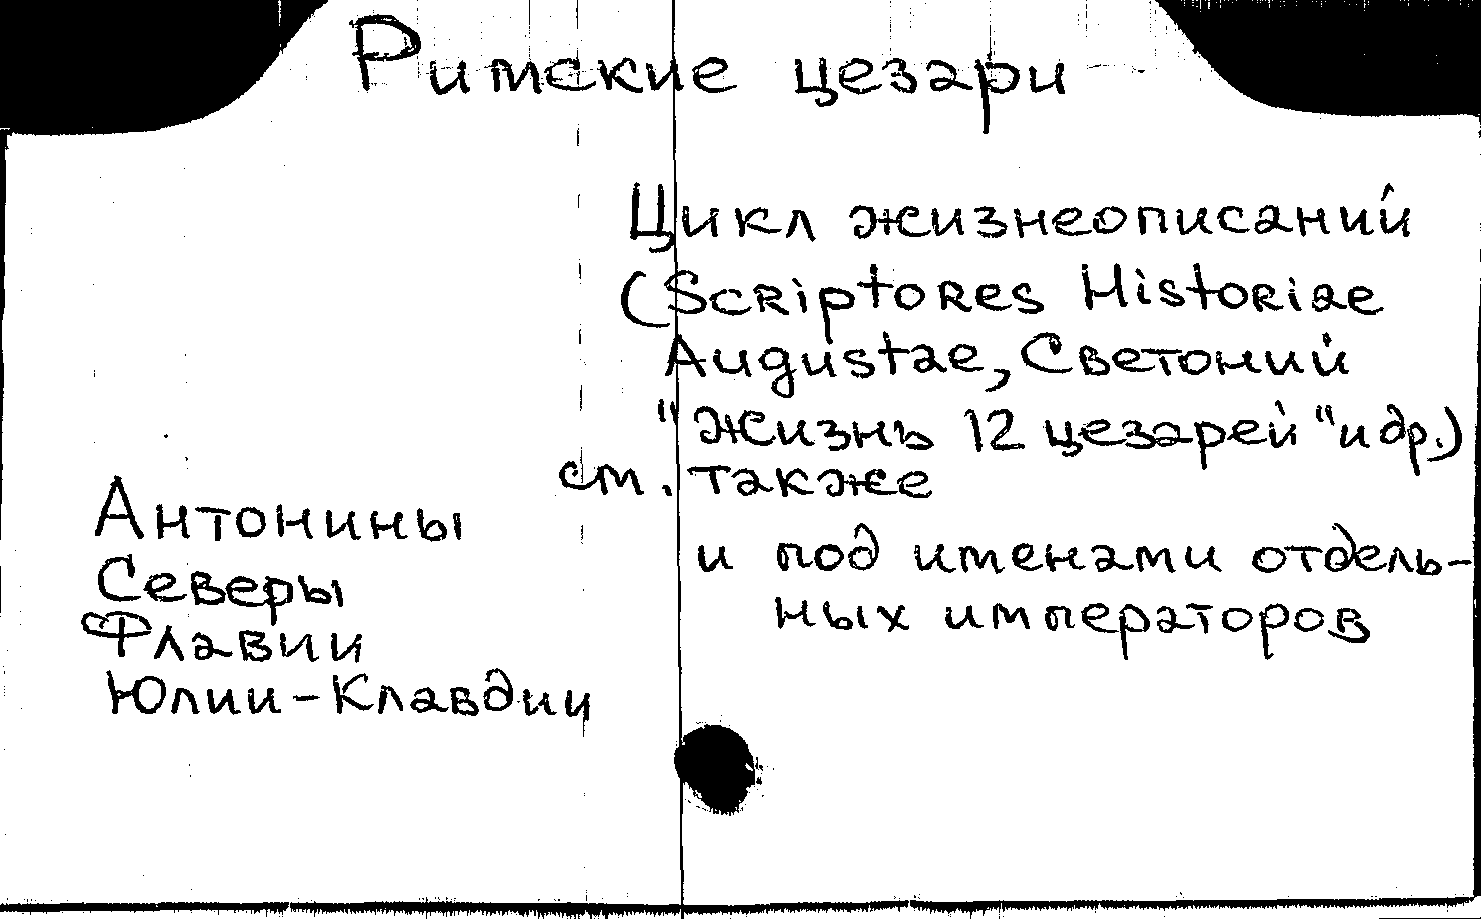 Римские цезари
Цикл жизнеописаний
(Scriptores Historiae
Augustae, Светоний
"Жизнь 12 цезарей" и др.)
см. также
Антонины
Северы
Флавии
Юлии-Клавдии
и под именами отдель-
ных императоров